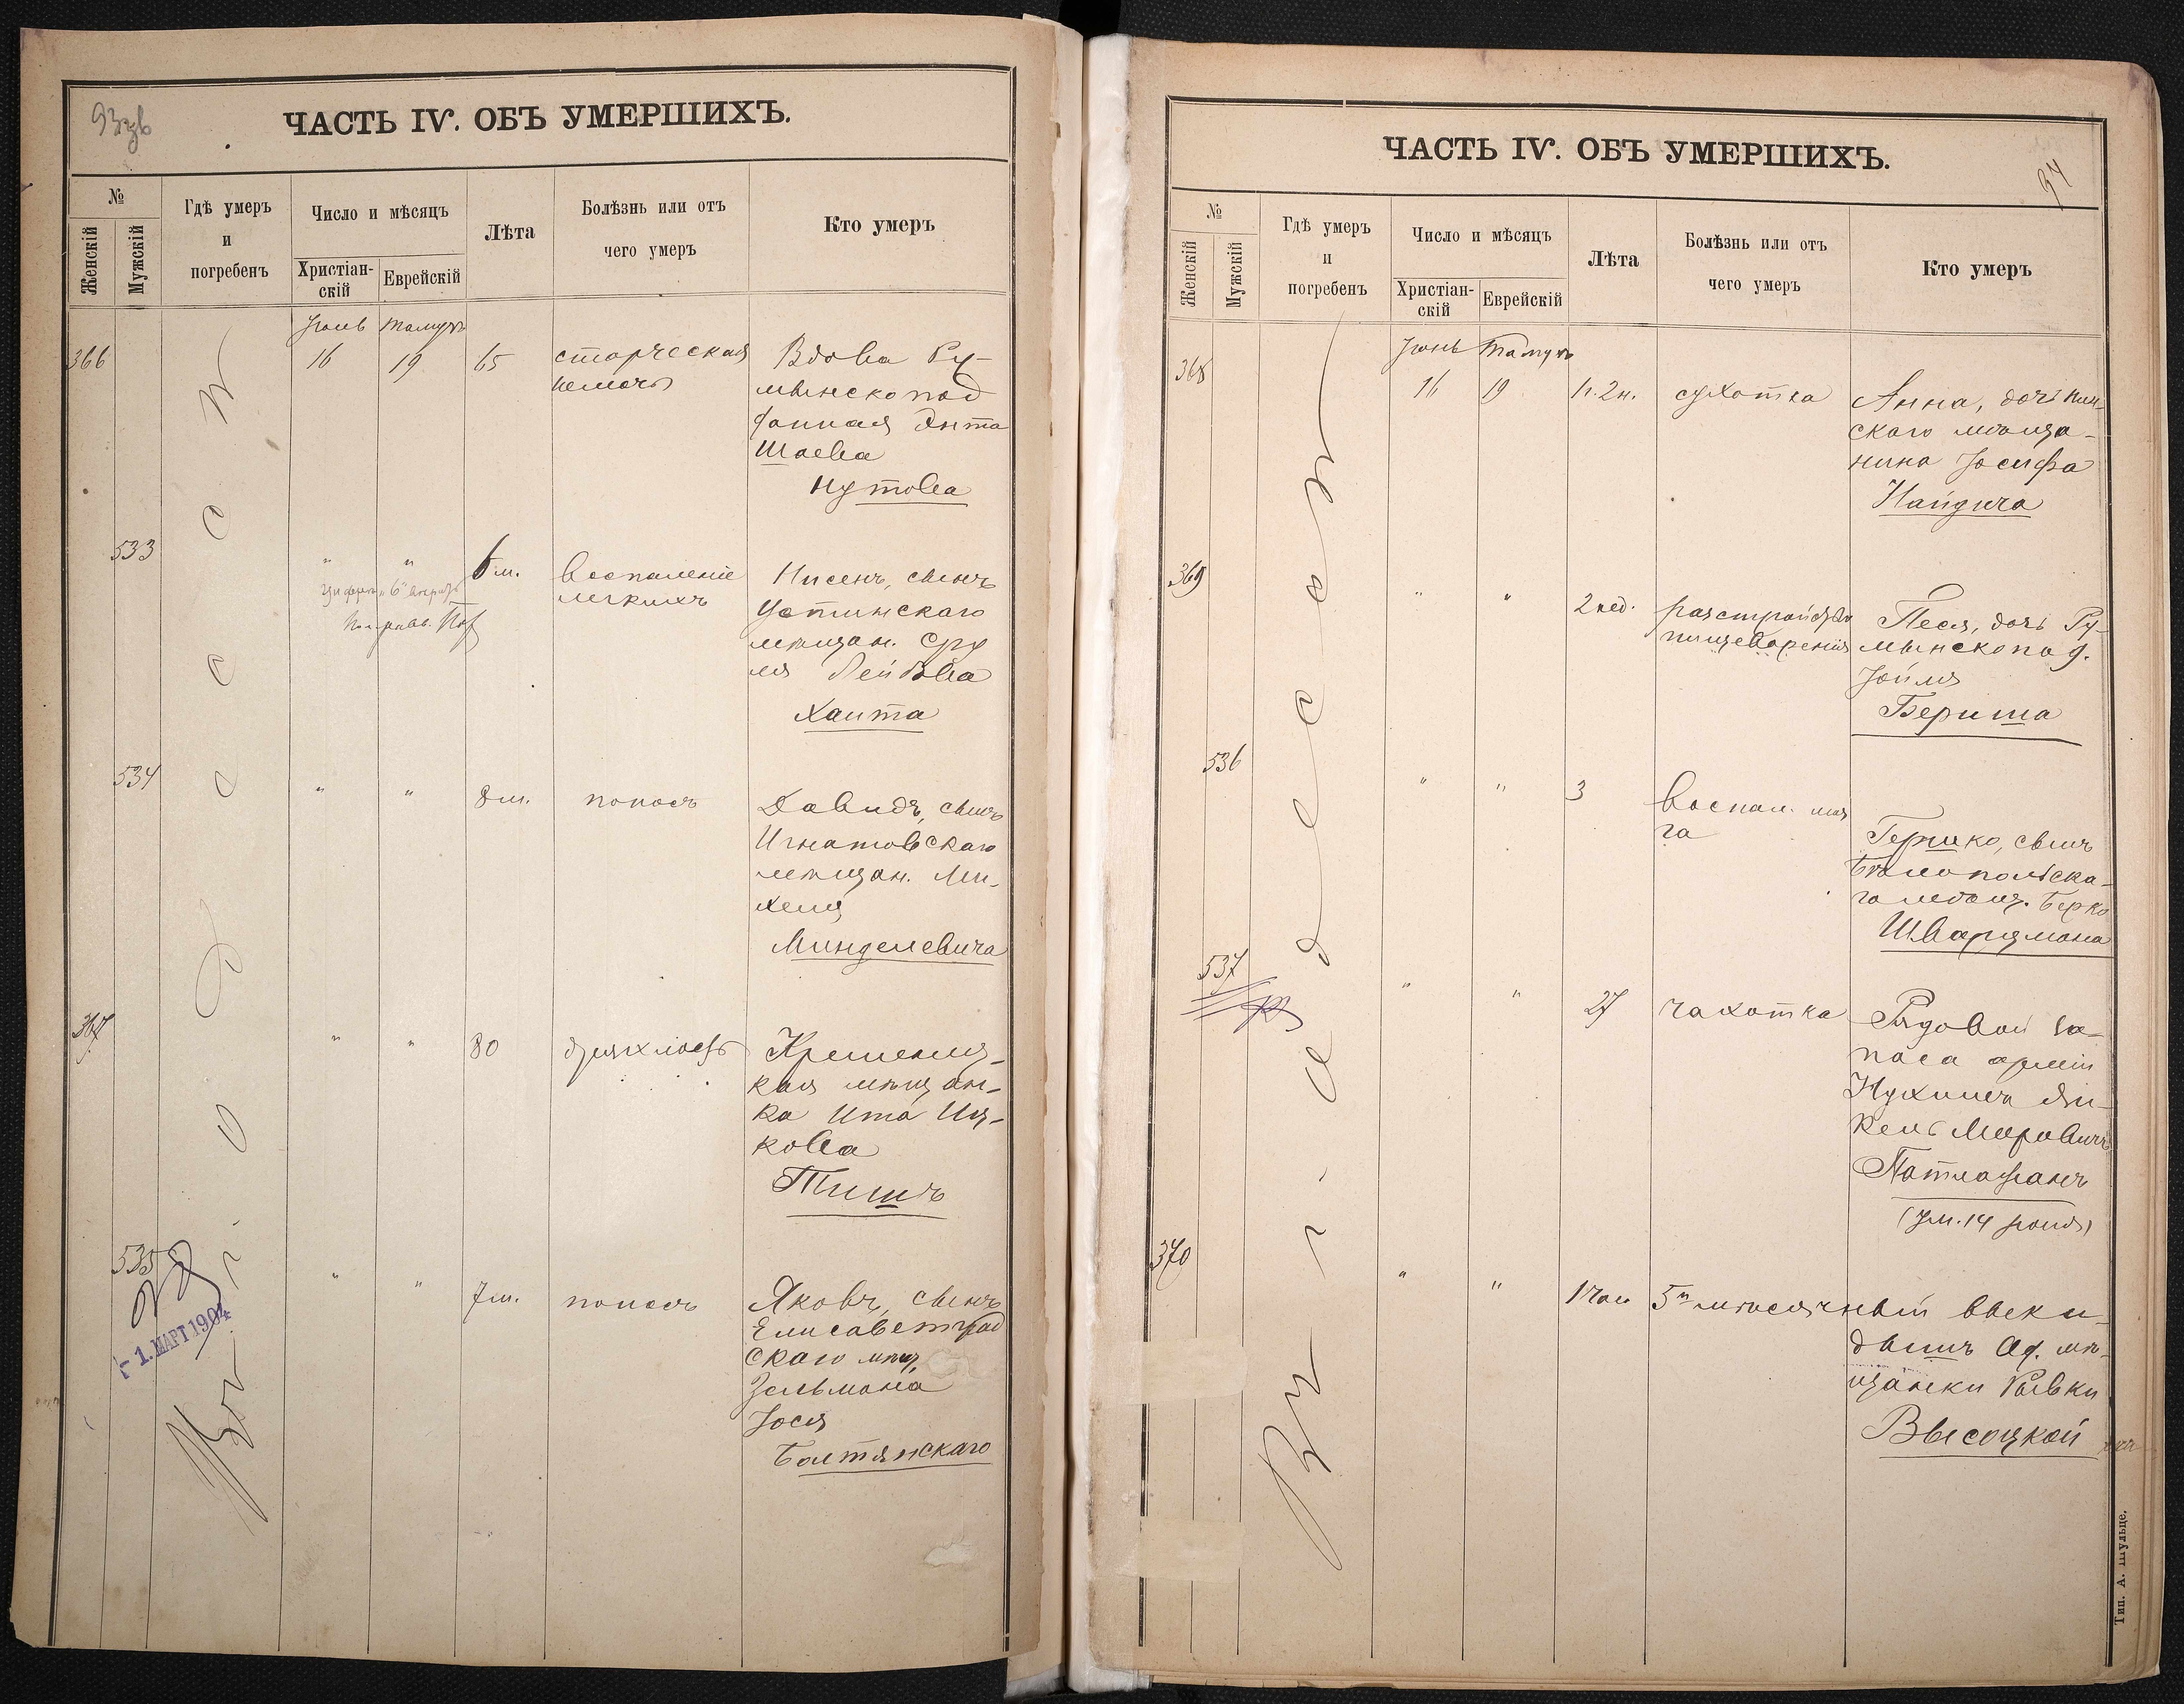 93зв
ЧАСТЬ IV. ОБЪ УМЕРШИХЪ.
№
Женскій
Мужскій
Гдѣ умеръ
и
погребенъ
Число и мѣсяцъ
Христіан-
скій
Еврейскій
Лѣта
Болѣзнь или отъ
чего умеръ
Кто умеръ
Въ г. Одессѣ
Іюнь Тамузъ
366 16 19 65
старческая
немочь
Вдова Ру-
мынскопод
данная Энта
Шаева
Нутова
533 " " 6 м.
воспаленіе
легкихъ
Нисенъ, сынъ
Устинскаго
мѣщан. Сру
ля Лейбова
Хаита
534 " " 8 м. поносъ
Давидъ, сынъ
Игнатовскаго
мѣщан. Ми-
хеля
Минделевича
367 " " 80 дряхлость
Кременец-
кая мѣщан-
ка Ита Иц-
кова
Тишъ
535 " " 7 м. поносъ
- 1. МАРТ 1904
Яковъ, сынъ
Елисаветград
скаго мѣщ.
Зельмана
Іося
Балтянскаго
94
ЧАСТЬ IV. ОБЪ УМЕРШИХЪ.
№
Женскій
Мужскій
Гдѣ умеръ
и
погребенъ
Число и мѣсяцъ
Христіан-
скій
Еврейскій
Лѣта
Болѣзнь или отъ
чего умеръ
Кто умеръ
Въ г. Одессѣ
Іюнь Тамузъ
368 16 19 сухотка
Анна, дочь Пин-
скаго мѣща-
нина Іосифа
Найдича
369 " " 2 нед.
разстройство
пищеваренія
Песя, дочь Ру-
мынскопод.
Іойля
Бериша
536 " " 3
воспал. моз
га
Гершко, сынъ
Бѣлопольска-
го мѣщ. Берко
Шварцмана
537 " " 27 чахотка
Рядовой за-
паса арміи
Нухимъ Ян-
кель Меровичъ
Патлажанъ
(Ум. 14 іюня)
370 " " 1 час
5ти мѣсячный выки-
дышъ Од. мѣ-
щанки Ривки
Высоцкой
Тип. А. Шульце.